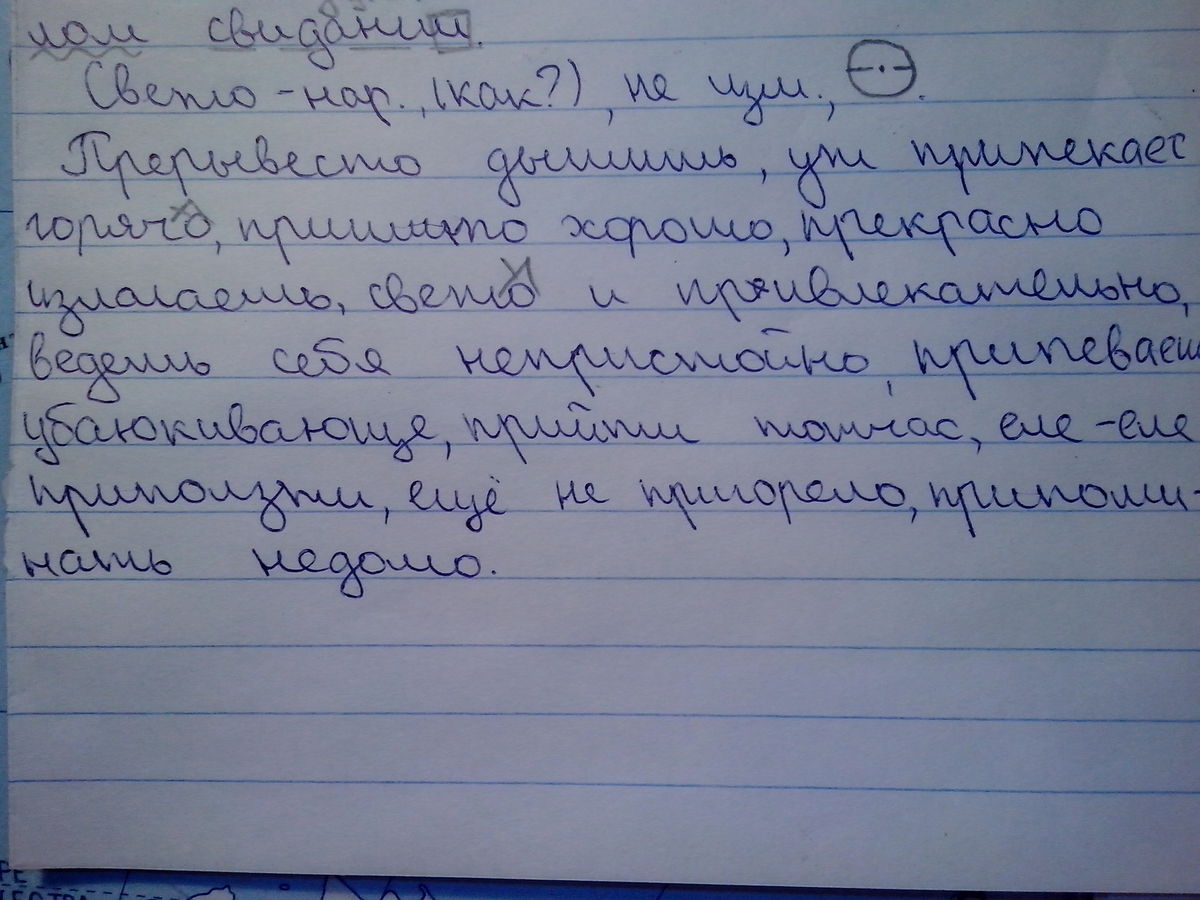 лом свидании.
Светло - нар., (как?), не изм.,
Прерывесто дышишь, уж припекает
горячо, пришито хорошо, прекрасно
излагаешь, светло и привлекательно,
ведешь себя непристойно, припеваеш
убаюкивающе, прийти тотчас, еле-еле
приползти, ещё не пригорело, припоми-
нать недолго.